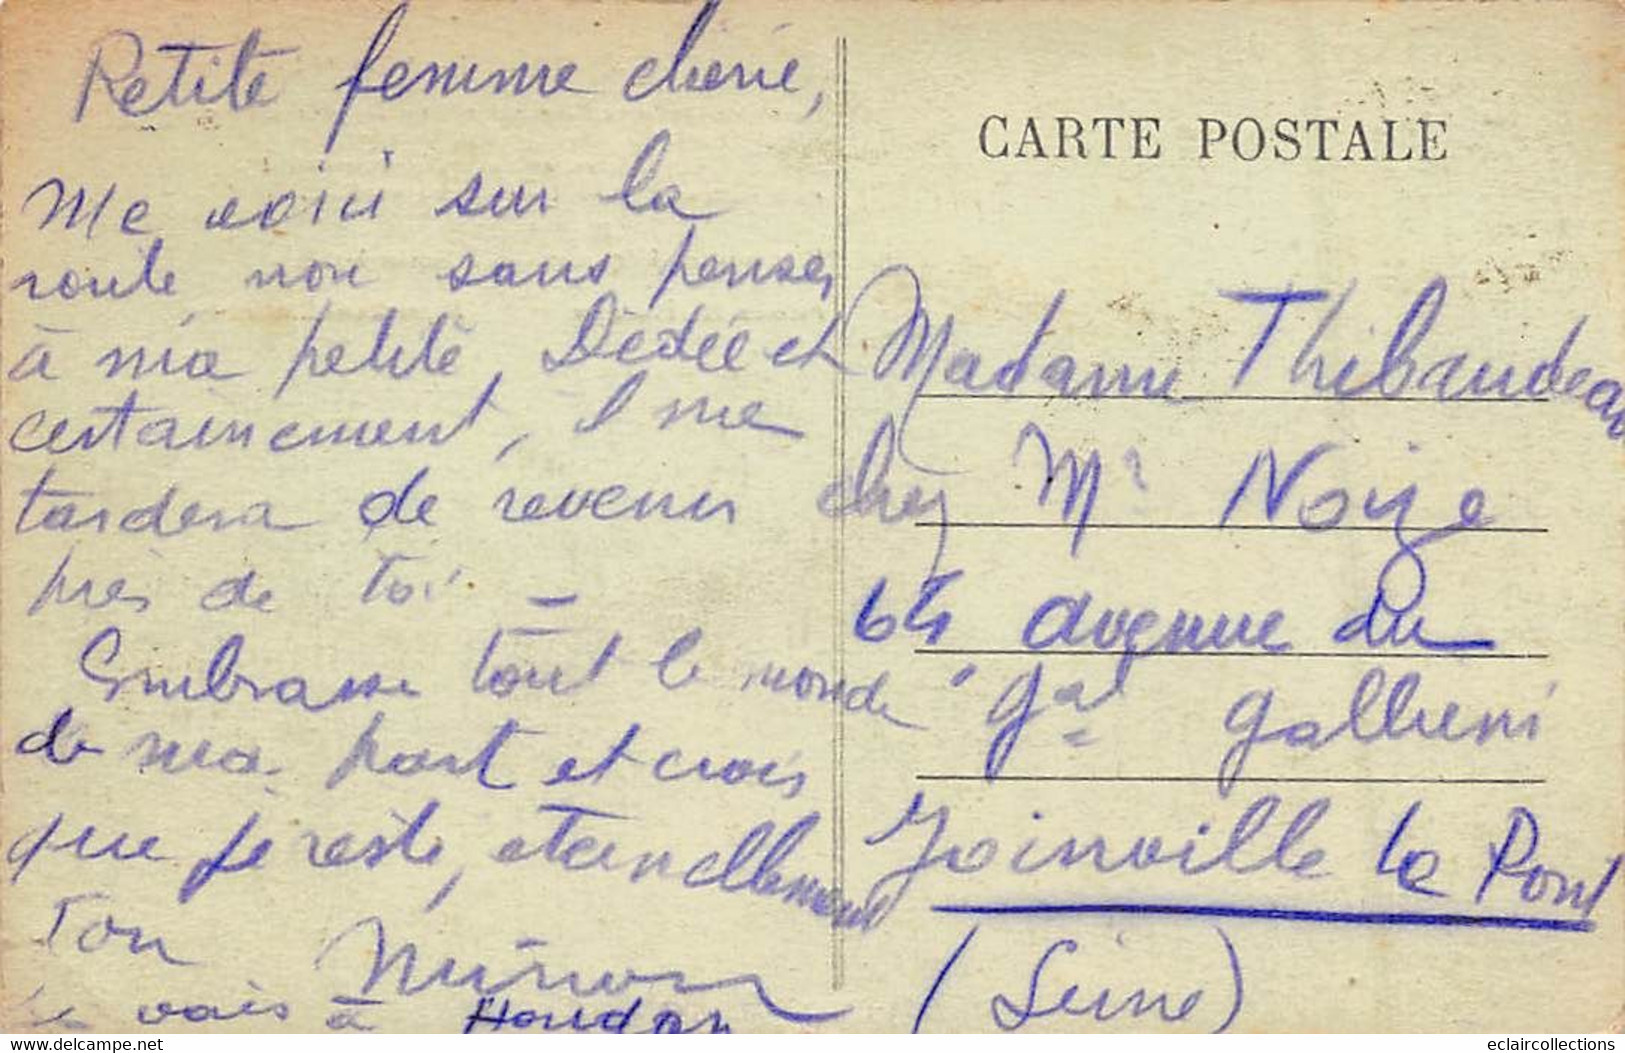 Petite femme chérie,
Me voici sur la
route non sans penser
à ma petite Dédée et
certainement, il me
tardera de revenir
près de toi —
Embrasse tout le monde
de ma part et crois
que je reste, eternellement
Ton
je vais à Houdan
CARTE POSTALE
Madame Thibaudeau
chez Mr Noize
64 avenue du
Gal Gallieni
Joinville le Pont
(Seine)
www.delcampe.net
eclaircollections